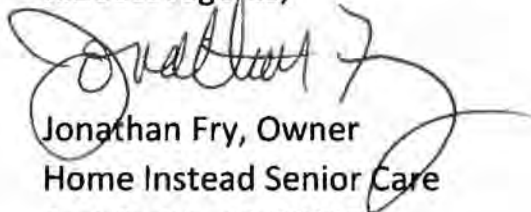 Jonathan Fry, Owner
Home Instead Senior Care